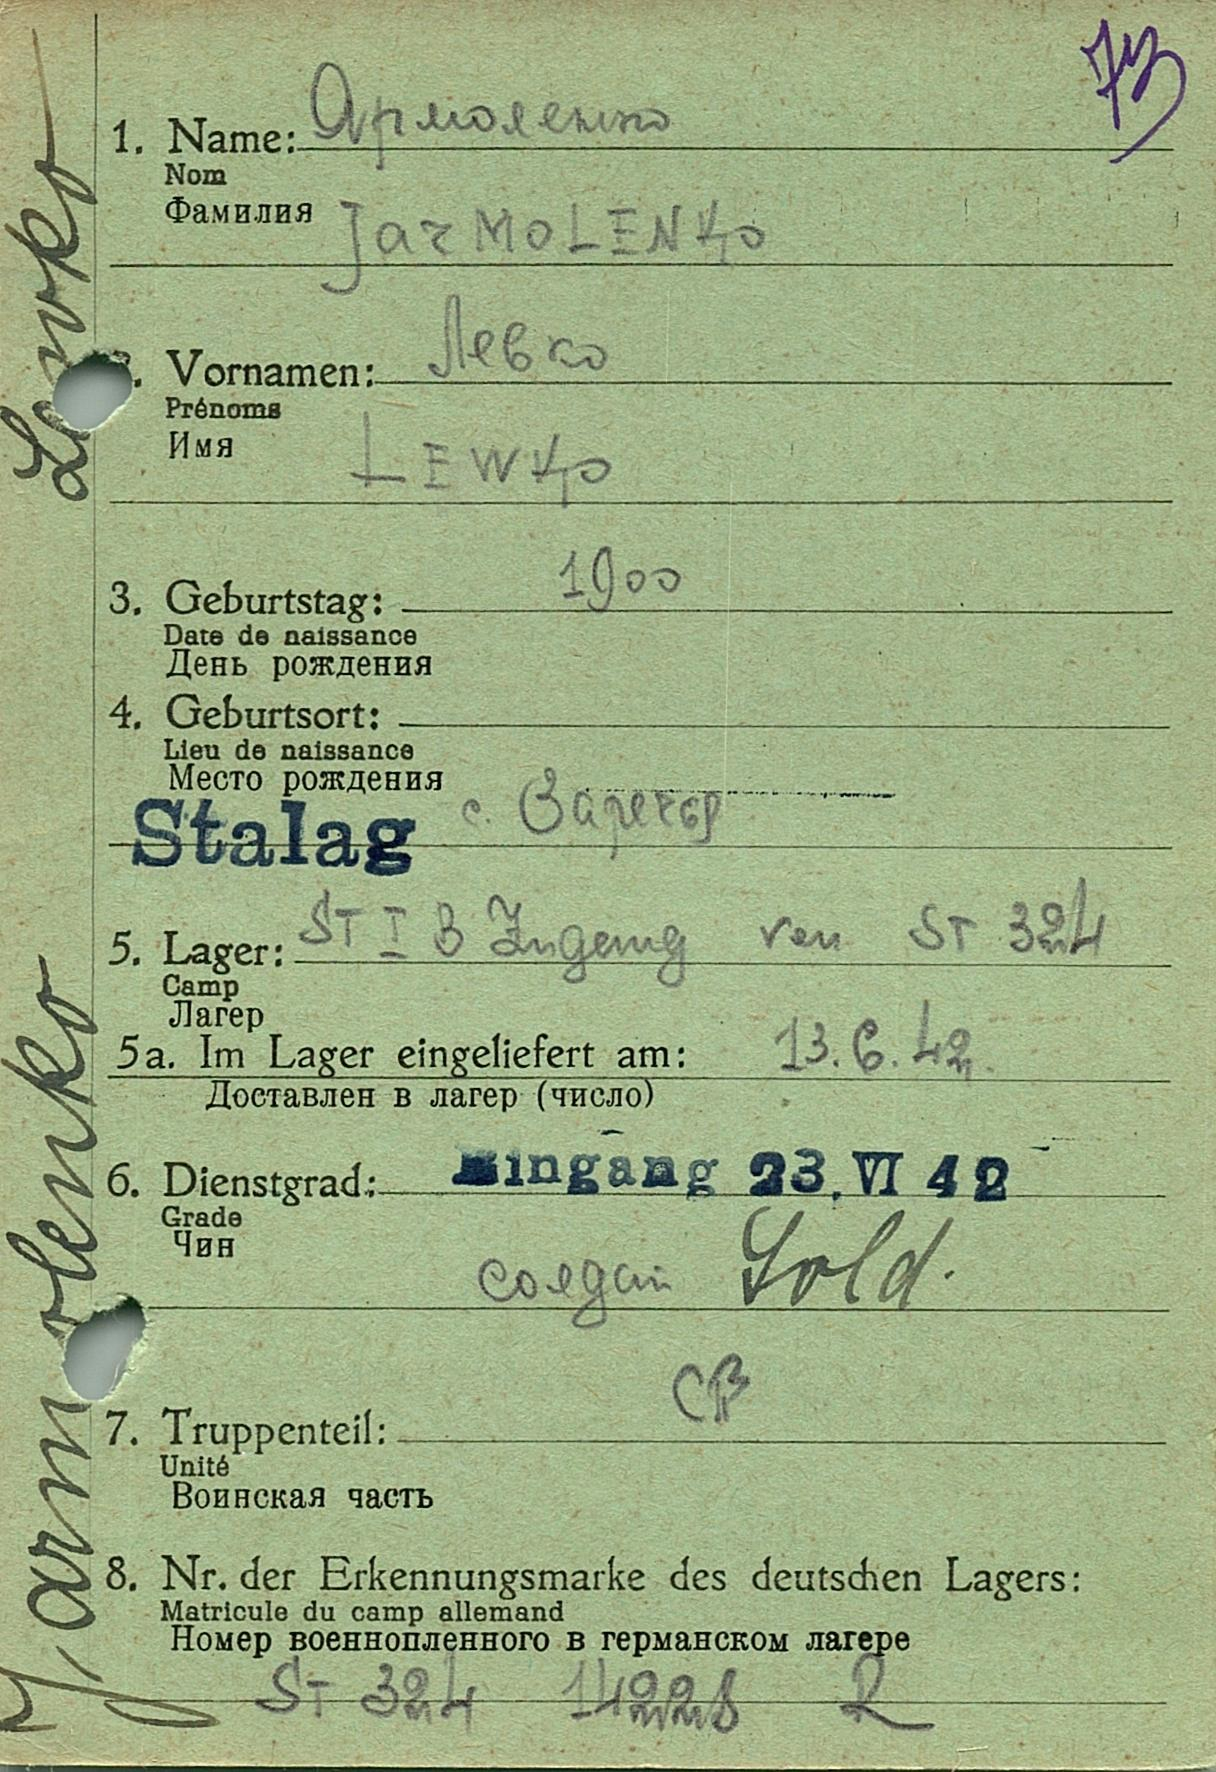 73
1. Name: Ярмоленко
Nom
Фамилия
JarMOLENKo
. Vornamen: Левко
Prénoms
Имя
LEWKo
3. Geburtstag: 1900
Date de naissance
День рождения
4. Geburtsort:
Lieu de naissance
Место рождения
Stalag с.
5. Lager: ST I B Zugang von ST 324
Camp
Лагер
5a. Im Lager eingeliefert am: 13.6.42.
Доставлен в лагер (число)
6. Dienstgrad: Eingang 23. VI 42
Grade
Чин
солдат Sold.
7. Truppenteil: СП
Unité
Воинская часть
8. Nr. der Erkennungsmarke des deutschen Lagers:
Matricule du camp allemand
Номер военнопленного в германском лагере
ST 324 14228 R
Jarmolenko Lewko